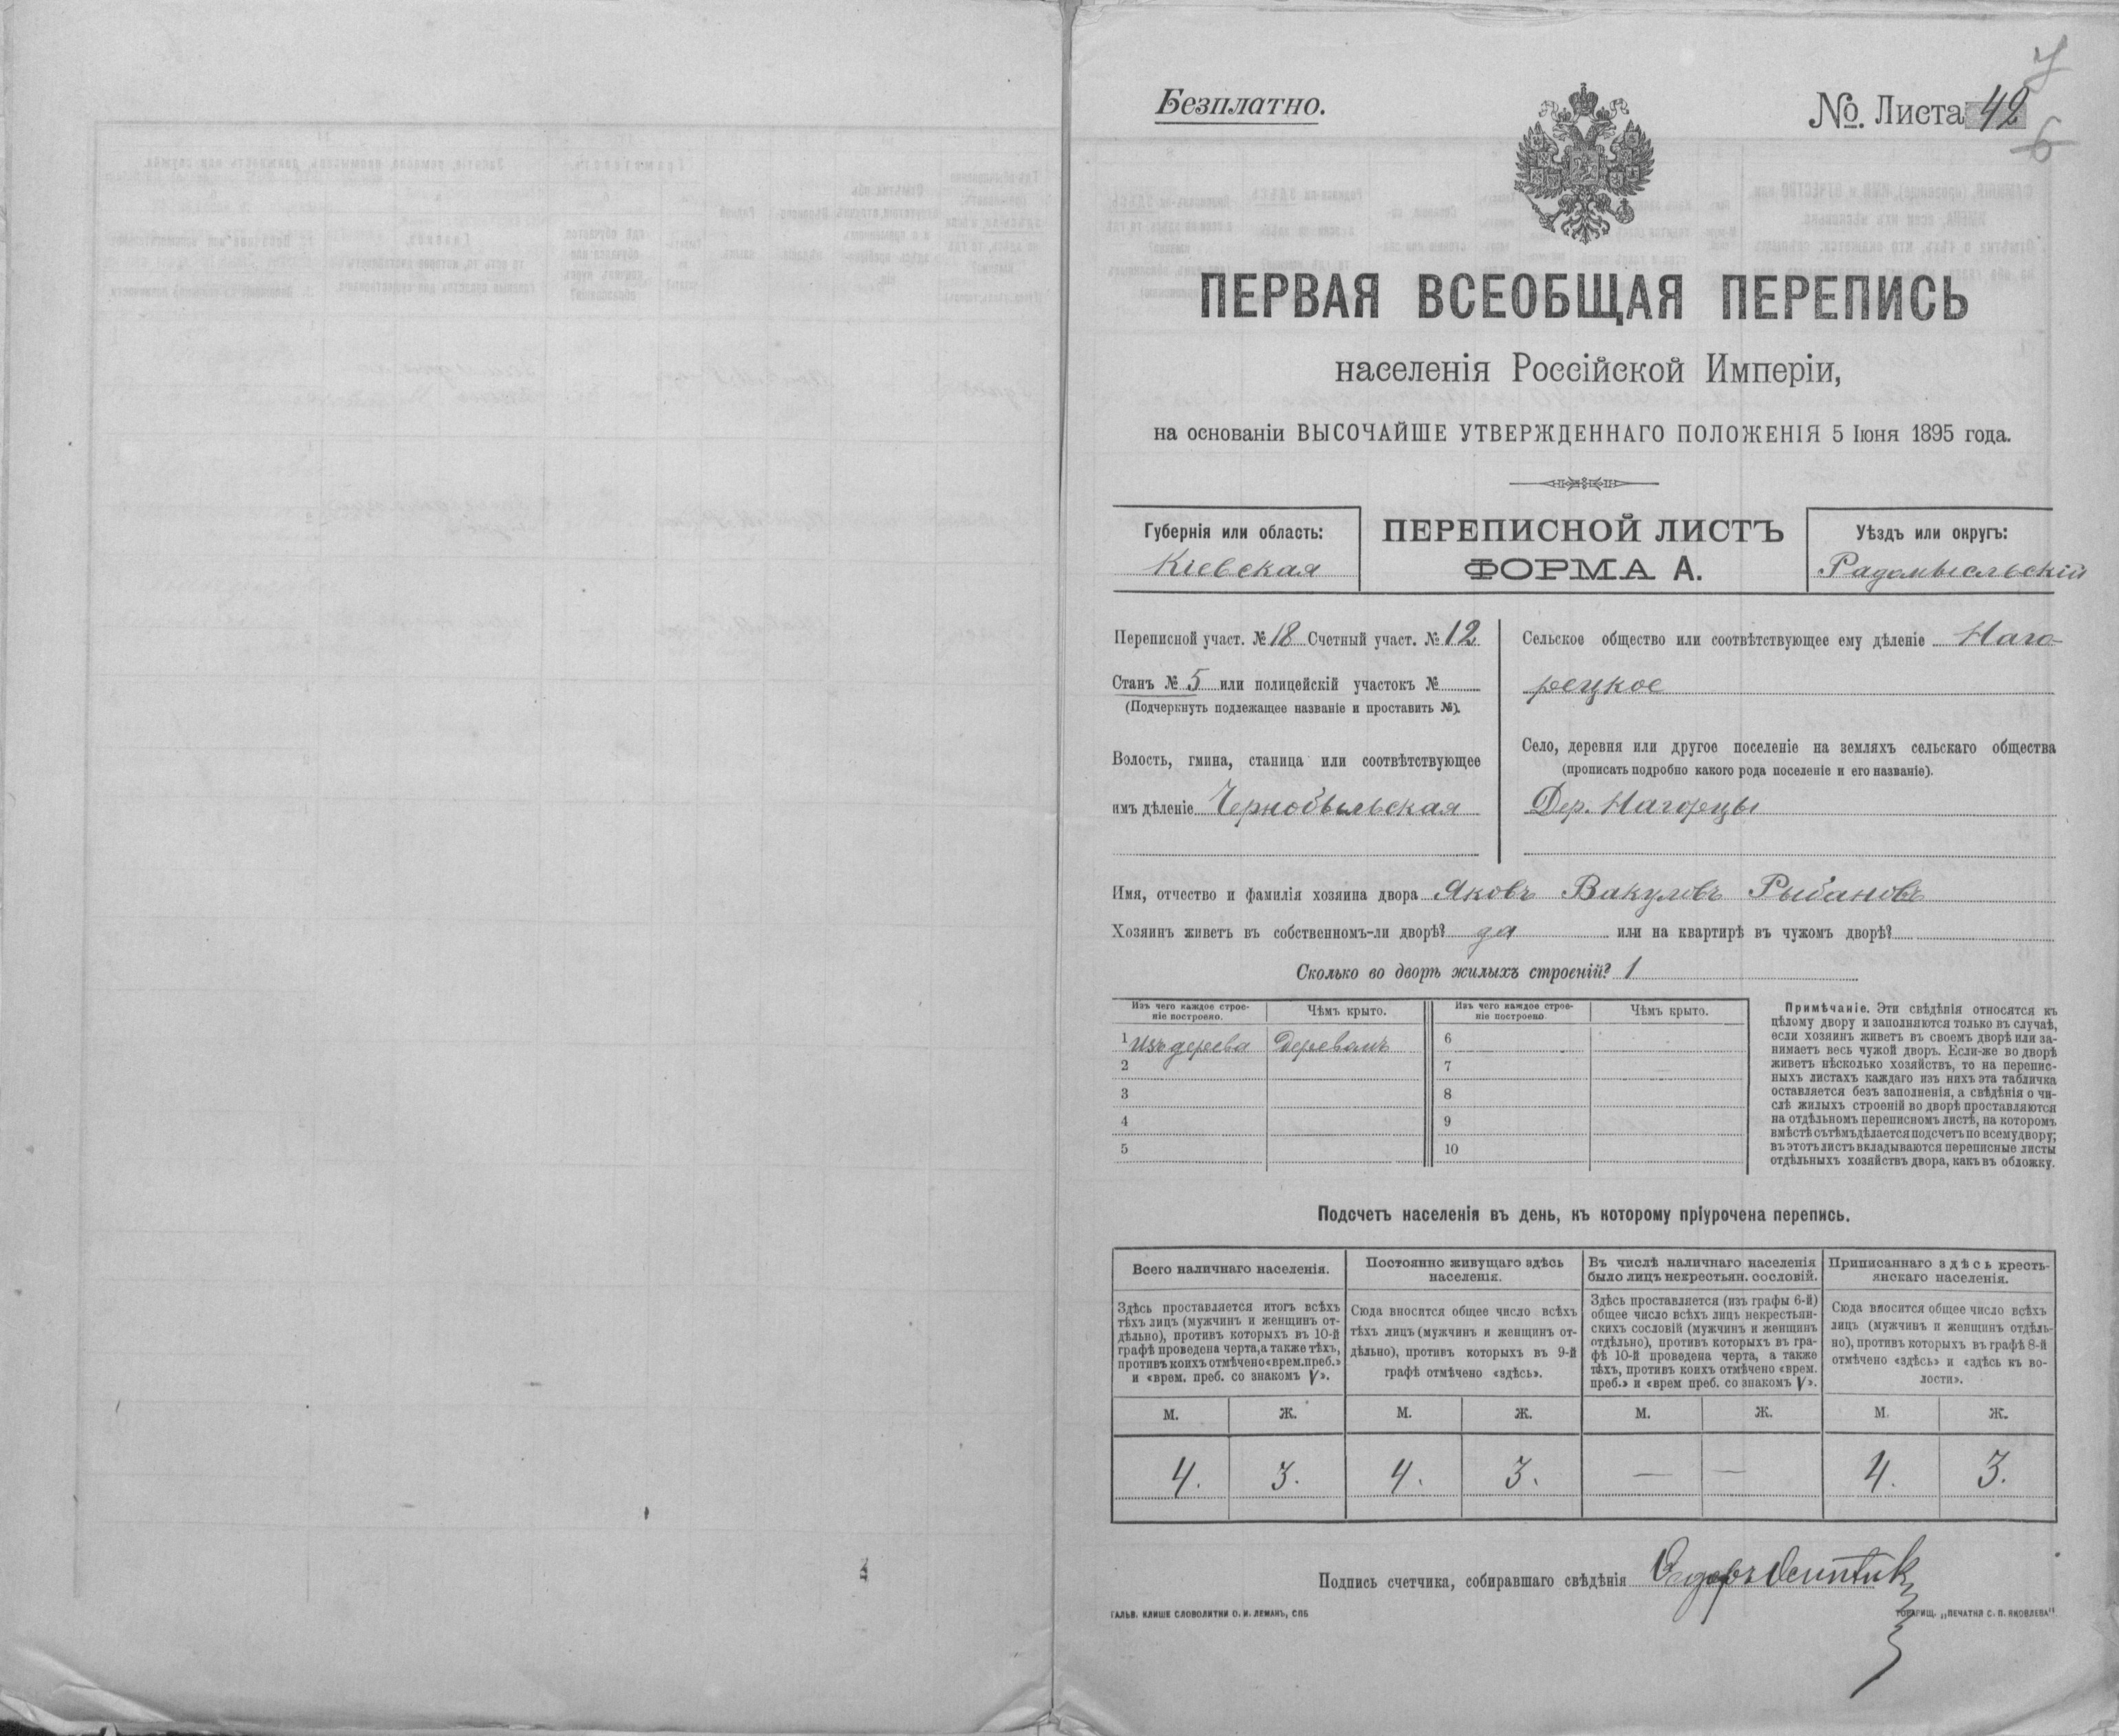 Безплатно.
№ Листа 42
7
6
ПЕРВАЯ ВСЕОБЩАЯ ПЕРЕПИСЬ
населенія Россійской Имперіи,
на основаніи ВЫСОЧАЙШЕ УТВЕРЖДЕННАГО ПОЛОЖЕНІЯ 5 Іюня 1895 года.
Губернія или область:
Кіевская
ПЕРЕПИСНОЙ ЛИСТЪ
ФОРМА А.
Уѣздъ или округъ:
Радомысльскій
Переписной участ. № 18 Счетный участ. № 12
Станъ № 5 или полицейскій участокъ №
(Подчеркнуть подлежащее названіе и проставить №).
Волость, гмина, станица или соотвѣтствующее
имъ дѣленіе Чернобыльская
Сельское общество или соотвѣтствующее ему дѣленіе Наго-
рецкое
Село, деревня или другое поселеніе на земляхъ сельскаго общества
(прописать подробно какого рода поселеніе и его названіе).
Дер. Нагорецы
Имя, отчество и фамилія хозяина двора Яковъ Вакуловъ Рыбановъ
Хозяинъ живетъ въ собственномъ-ли дворѣ? да или на квартирѣ въ чужомъ дворѣ?
Сколько во дворѣ жилыхъ строеній? 1
Изъ чего каждое строе-
ніе построено.
Чѣмъ крыто.
Изъ чего каждое строе-
ніе построено
Чѣмъ крыто.
1 Изъ дерева Деревомъ 6
2 7
3 8
4 9
5 10
Примѣчаніе. Эти свѣдѣнія относятся къ
цѣлому двору и заполняются только въ случаѣ,
если хозяинъ живетъ въ своемъ дворѣ или за-
нимаетъ весь чужой дворъ. Если-же во дворѣ
живетъ нѣсколько хозяйствъ, то на перепис-
ныхъ листахъ каждаго изъ нихъ эта табличка
оставляется безъ заполненія, а свѣдѣнія о чи-
слѣ жилыхъ строеній во дворѣ проставляются
на отдѣльномъ переписномъ листѣ, на которомъ
вмѣстѣ съ тѣмъ дѣлается подсчетъ по всему двору;
въ этотъ листъ вкладываются переписные листы
отдѣльныхъ хозяйствъ двора, какъ въ обложку.
Подсчетъ населенія въ день, къ которому пріурочена перепись.
Всего наличнаго населенія.
Здѣсь проставляется итогъ всѣхъ
тѣхъ лицъ (мужчинъ и женщинъ от-
дѣльно), противъ которыхъ въ 10-й
графѣ проведена черта, а также тѣхъ,
противъ коихъ отмѣчено «врем. преб.»
и «врем. преб. со знакомъ V».
Постоянно живущаго здѣсь
населенія.
Сюда вносится общее число всѣхъ
тѣхъ лицъ (мужчинъ и женщинъ от-
дѣльно), противъ которыхъ въ 9-й
графѣ отмѣчено «здѣсь».
Въ числѣ наличнаго населенія
было лицъ некрестьян. сословій.
Здѣсь проставляется (изъ графы 6-й)
общее число всѣхъ лицъ некрестьян-
скихъ сословій (мужчинъ и женщинъ
отдѣльно), противъ которыхъ въ гра-
фѣ 10-й проведена черта, а также
тѣхъ, противъ коихъ отмѣчено «врем.
преб.» и «врем преб. со знакомъ V».
Приписаннаго здѣсь кресть-
янскаго населенія.
Сюда вносится общее число всѣхъ
лицъ (мужчинъ и женщинъ отдѣль-
но), противъ которыхъ въ графѣ 8-й
отмѣчено «здѣсь» и «здѣсь къ во-
лости».
М. Ж. М. Ж. М. Ж. М. Ж.
4. 3. 4. 3. — — 4. 3.
Подпись счетчика, собиравшаго свѣдѣнія
ГАЛЬВ. КЛИШЕ СЛОВОЛИТНИ О. И. ЛЕМАНЪ, СПБ
ТОВАРИЩ. „ПЕЧАТНЯ С. П. ЯКОВЛЕВА"